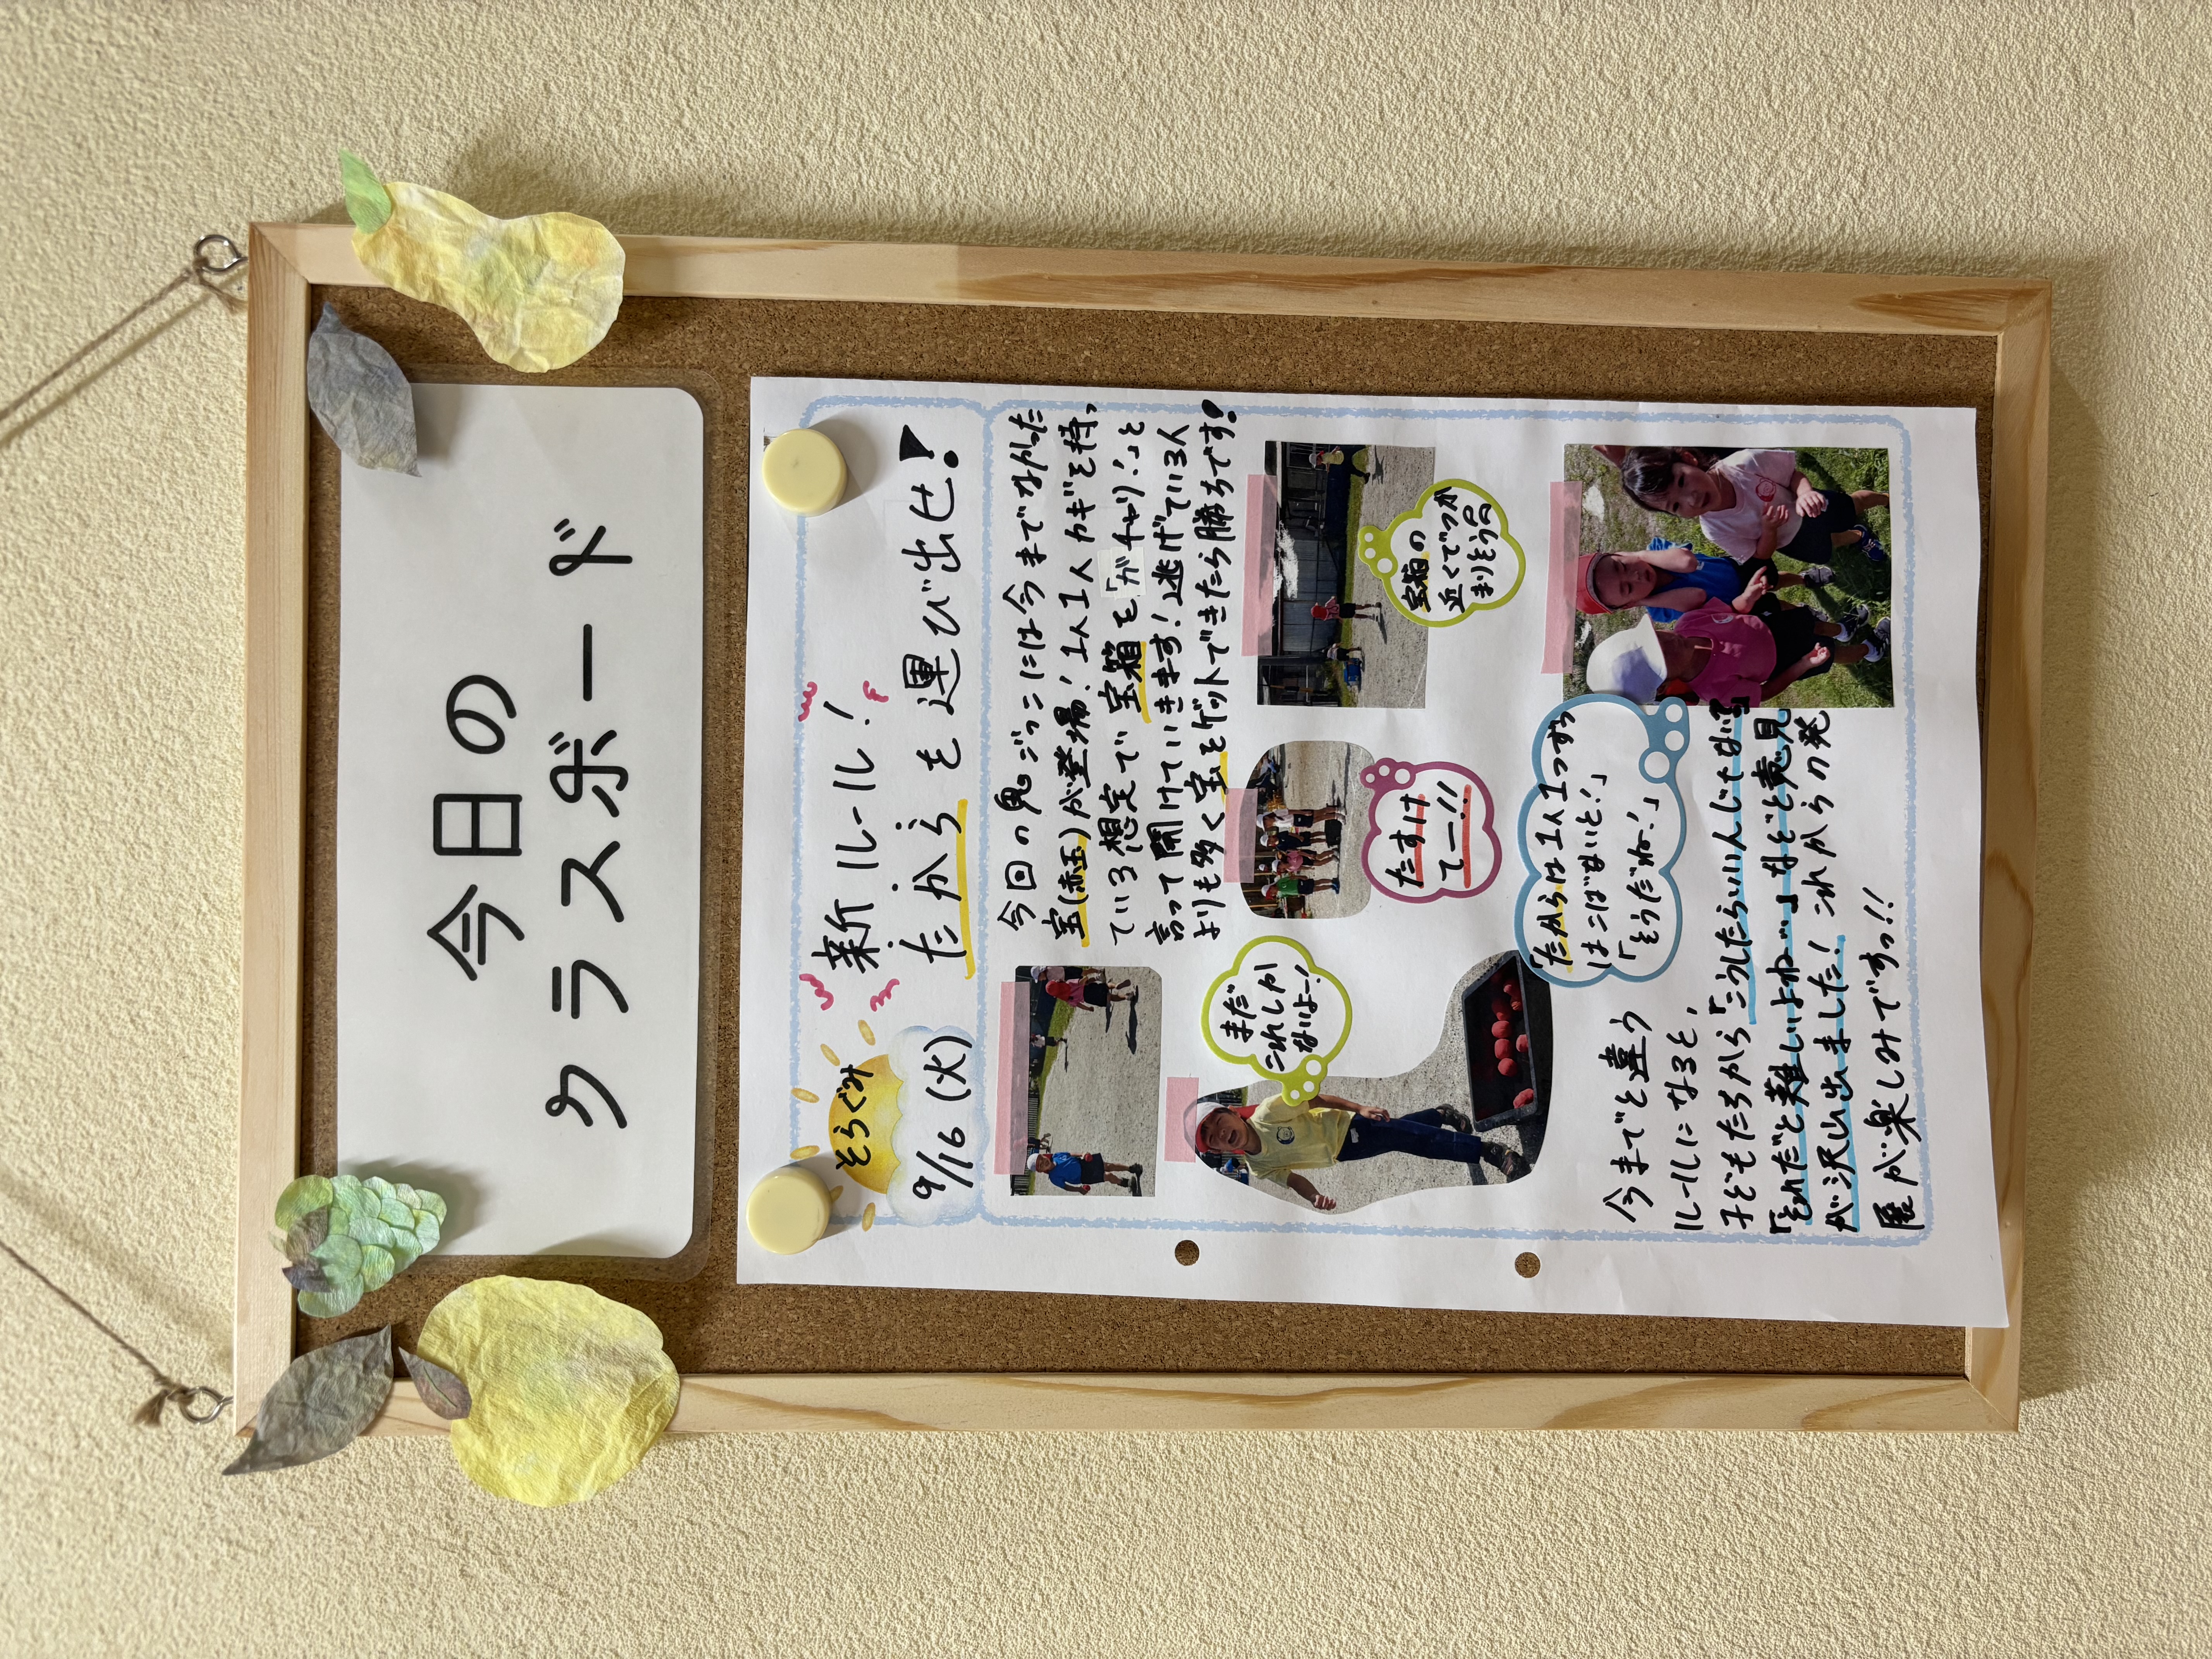 今日の
クラスボード
そらぐみ
9/16(火)
新ルール!
たからを運び出せ!
今回の鬼ごっこには今までなかった
宝(赤玉)が登場!1人1人カギを持っ
ている想定で宝箱を「ガチャリ!」と
言って開けていきます!逃げている人
よりも多く宝をゲットできたら勝ちです!
まだ
これしか
ないよー!
たすけ
てー!!
宝箱の
近くでつか
まりそう
「たからは1人1つずつ
はこばないと!」
「そうだね!」
今までと違う
ルールになると、
子どもたちから「こうしたらいいんじゃない?」
「それだと難しいよね…」など意見
が沢山出ました!これからの発
展が楽しみですっ!!